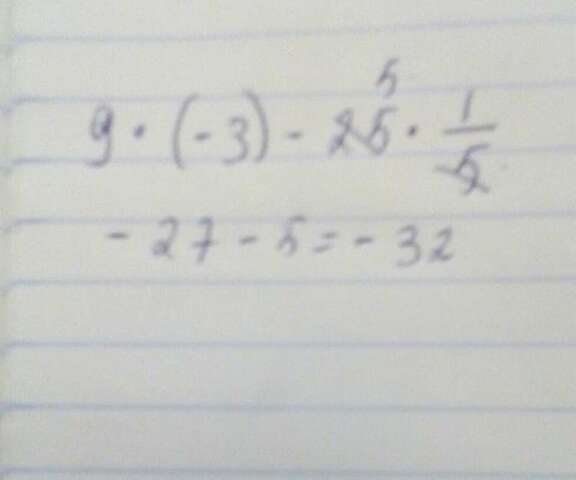 9 · (-3) - 25 5 · 1/5
-27 - 5 = -32